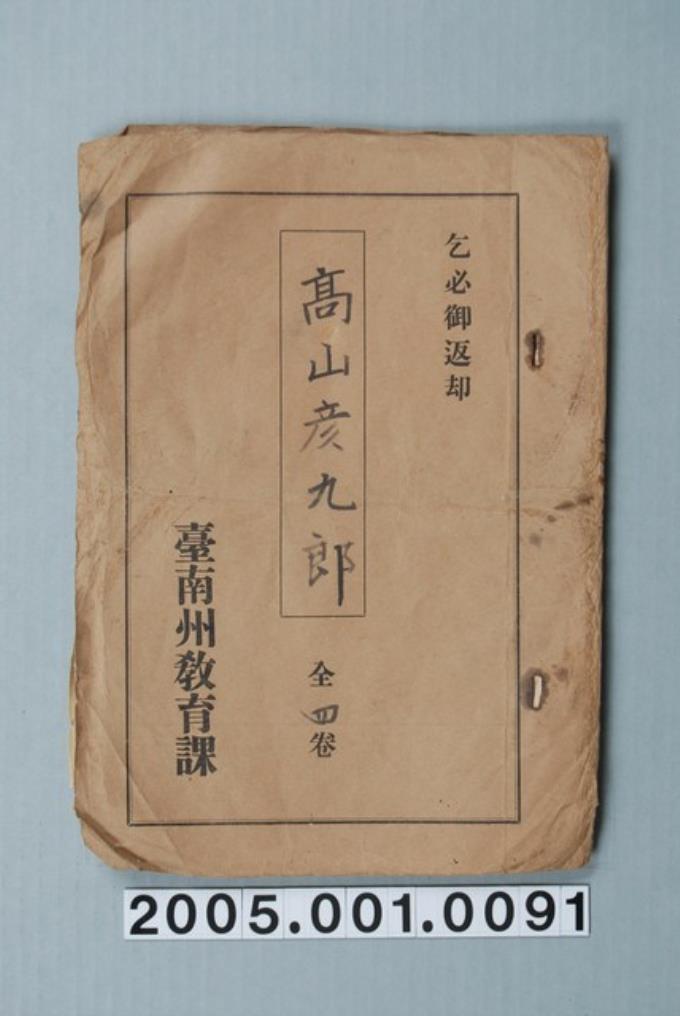 乞必御返却
髙山彦九郎
全四卷
臺南州敎育課
2005.001.0091